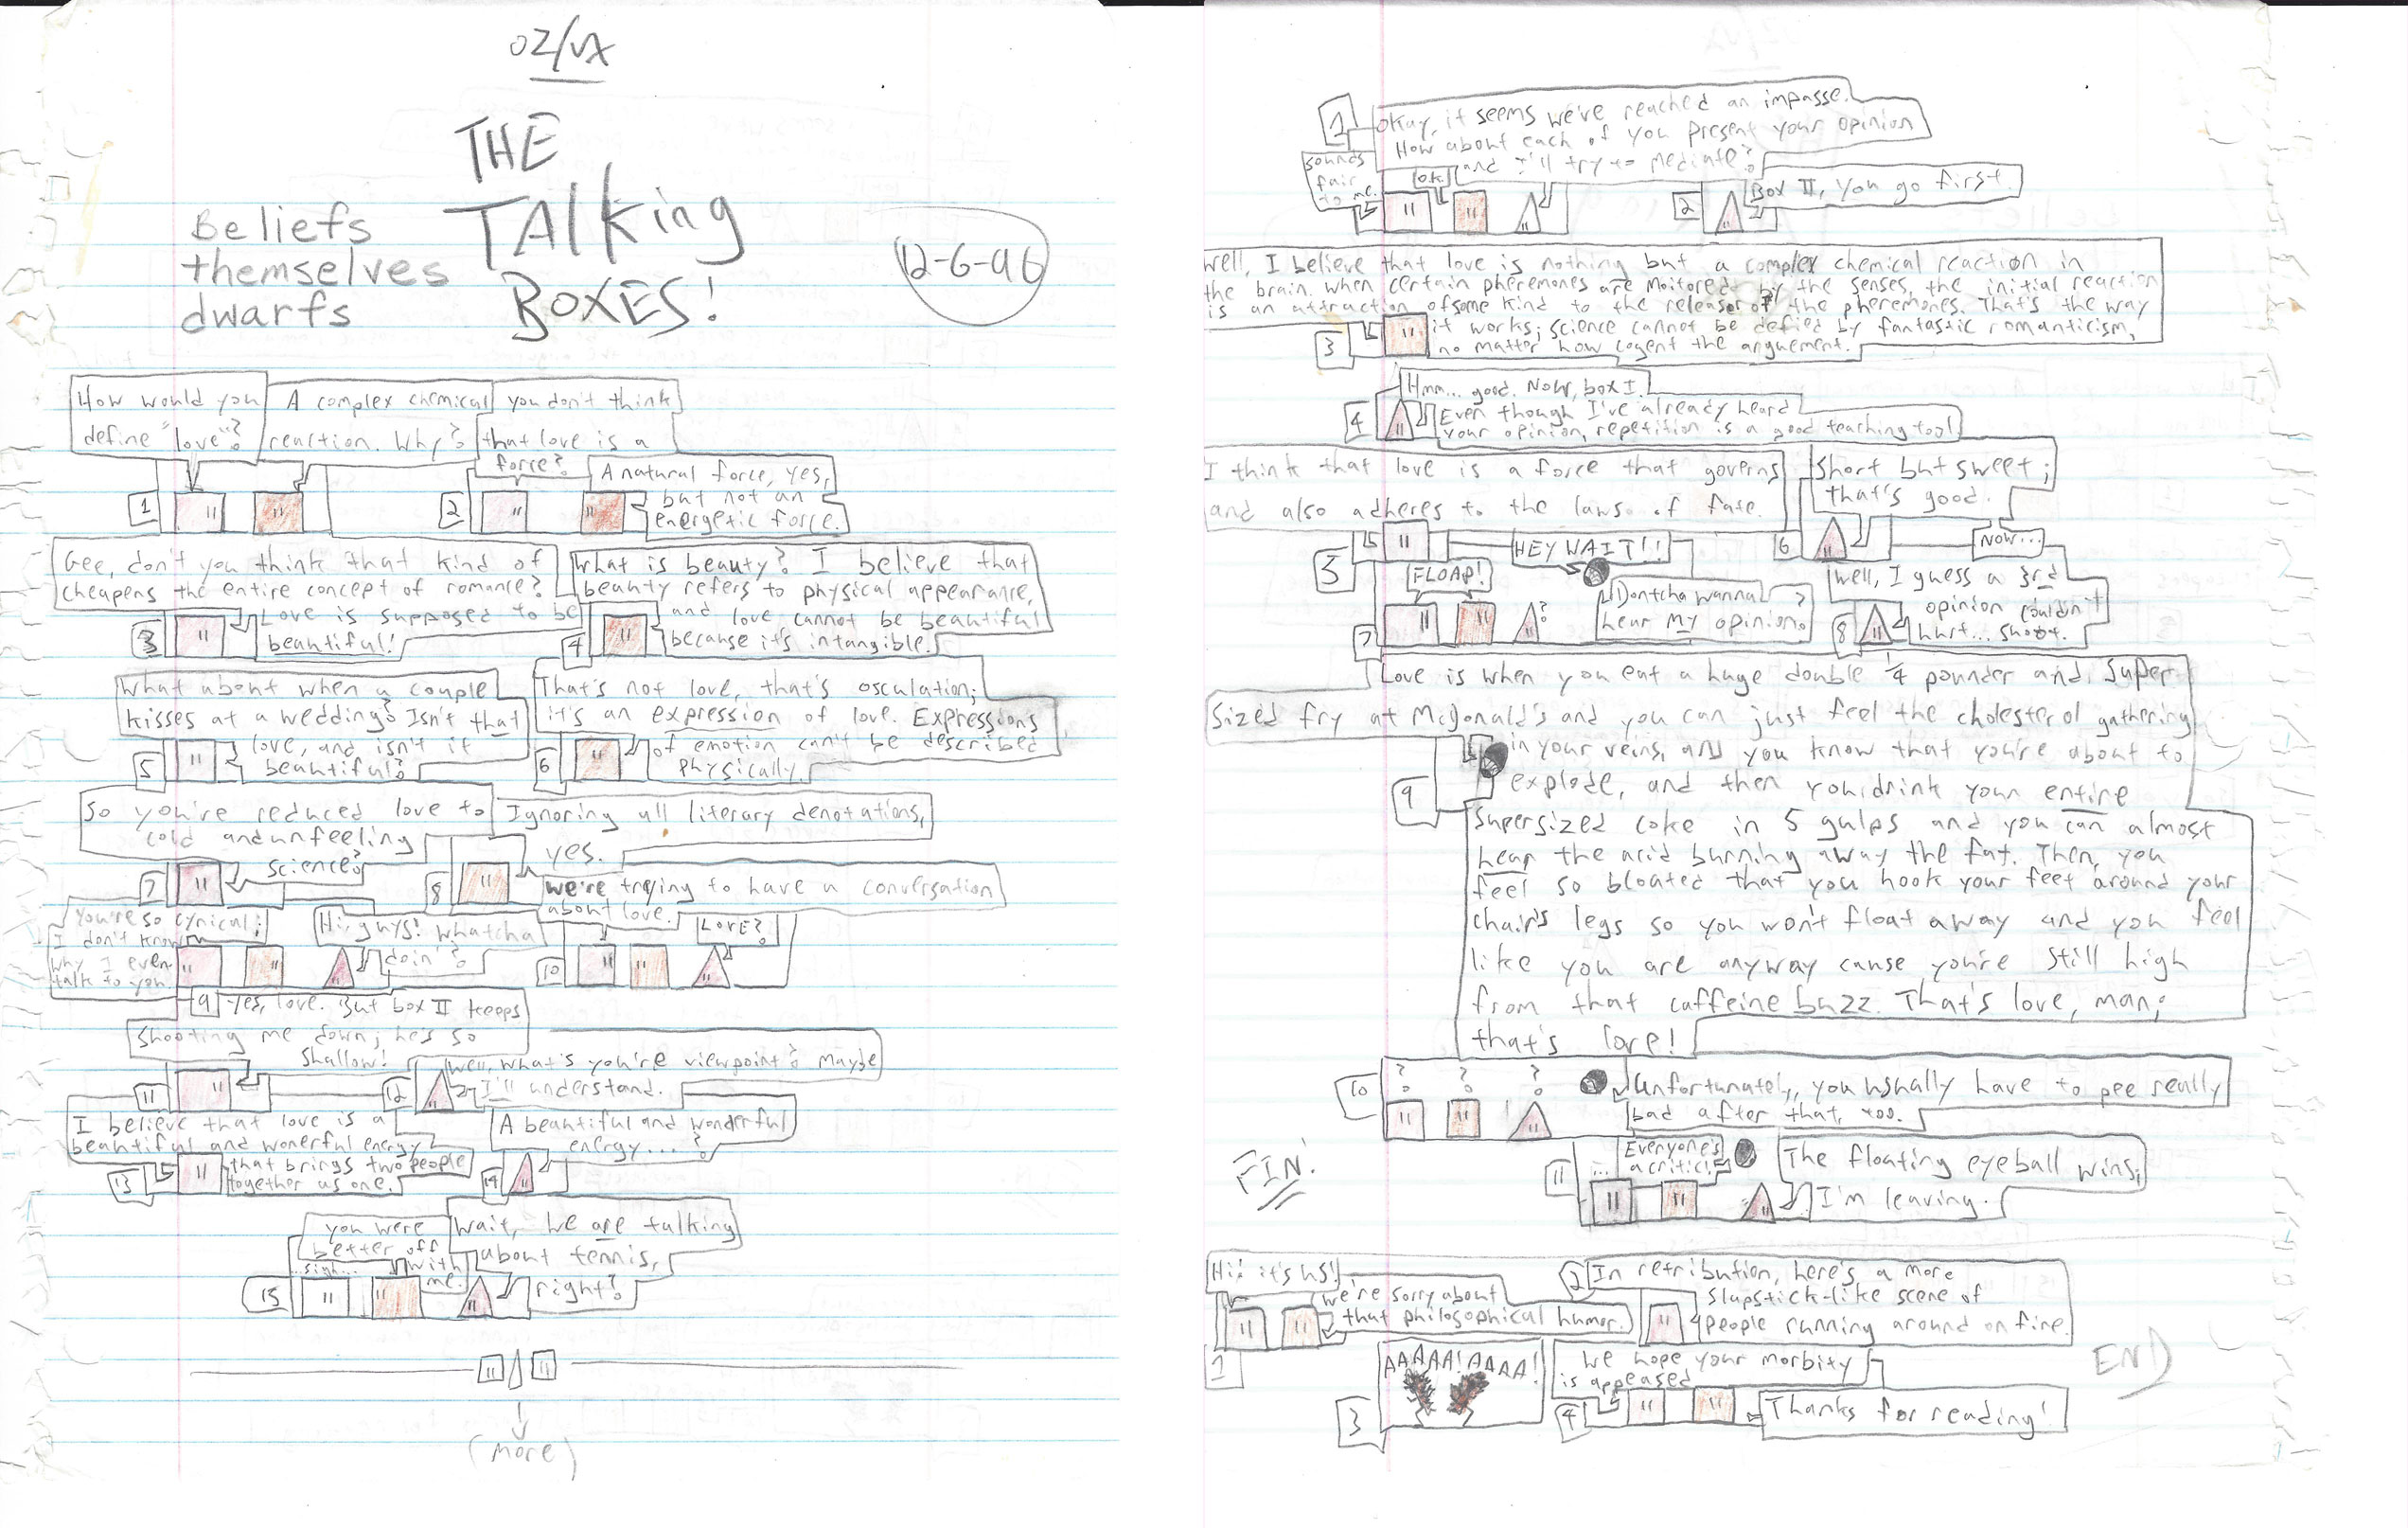 OZ/VX
THE
TALKing
BOXES!
Beliefs
themselves
dwarfs
12-6-96
How would you
define "love"?
A complex chemical
reaction. Why?
1
you don't think
that love is a
force?
A natural force, yes,
but not an
energetic force.
2
Gee, don't you think that kind of
cheapens the entire concept of romance?
Love is supposed to be
beautiful!
3
What is beauty? I believe that
beauty refers to physical appearance,
and love cannot be beautiful
because it's intangible.
4
What about when a couple
kisses at a wedding? Isn't that
love, and isn't it
beautiful?
5
That's not love, that's osculation;
it's an expression of love. Expressions
of emotion can't be described
physically.
6
So you've reduced love to
cold and unfeeling
science?
7
Ignoring all literary denotations,
yes.
8
You're so cynical;
I don't know
why I even
talk to you.
Hi, guys! Whatcha
doin'?
9
We're trying to have a conversation
about love.
LOVE?
10
Yes, love. But box II keeps
shooting me down; he's so
shallow!
11
Well, what's you're viewpoint? Maybe
I'll understand.
12
I believe that love is a
beautiful and wonerful energy
that brings two people
together as one.
13
A beautiful and wonderful
energy...?
14
...sigh...
you were
better off
with
me.
Wait, we are talking
about tennis,
right?
15
(more)
1
Okay, it seems we've reached an impasse.
How about each of you present your opinion
and I'll try to mediate?
sounds
fair
to me.
OK.
2
Box II, you go first.
Well, I believe that love is nothing but a complex chemical reaction in
the brain. When certain pheremones are moitored by the senses, the initial reaction
is an attraction of some kind to the releasor of the pheremones. That's the way
it works; science cannot be defied by fantastic romanticism,
no matter how cogent the arguement.
3
Hmm... good. Now, box I.
Even though I've already heard
your opinion, repetition is a good teaching tool
4
I think that love is a force that governs
and also adheres to the laws of fate.
5
Short but sweet;
that's good.
Now...
6
HEY WAIT!!
FLOAP!
?
Dontcha wanna
hear my opinion?
7
Well, I guess a 3rd
opinion couldn't
hurt... shoot.
8
Love is when you eat a huge double 1/4 pounder and Super
Sized fry at McDonald's and you can just feel the cholesterol gathering
in your veins, and you know that you're about to
explode, and then you drink your entire
Supersized coke in 5 gulps and you can almost
hear the acid burning away the fat. Then, you
feel so bloated that you hook your feet around your
chair's legs so you won't float away and you feel
like you are anyway cause you're still high
from that caffeine buzz. That's love, man;
that's love!
9
? ? ?
Unfortunately, you usually have to pee really
bad after that, too.
10
...
Everyone's
a critic!
The floating eyeball wins;
I'm leaving.
11
FIN!
Hi! it's us!
We're sorry about
that philosophical humor.
1
2
In retribution, here's a more
slapstick-like scene of
people running around on fire.
AAAAA! AAAA!
3
We hope your morbity
is appeased
Thanks for reading!
4
END